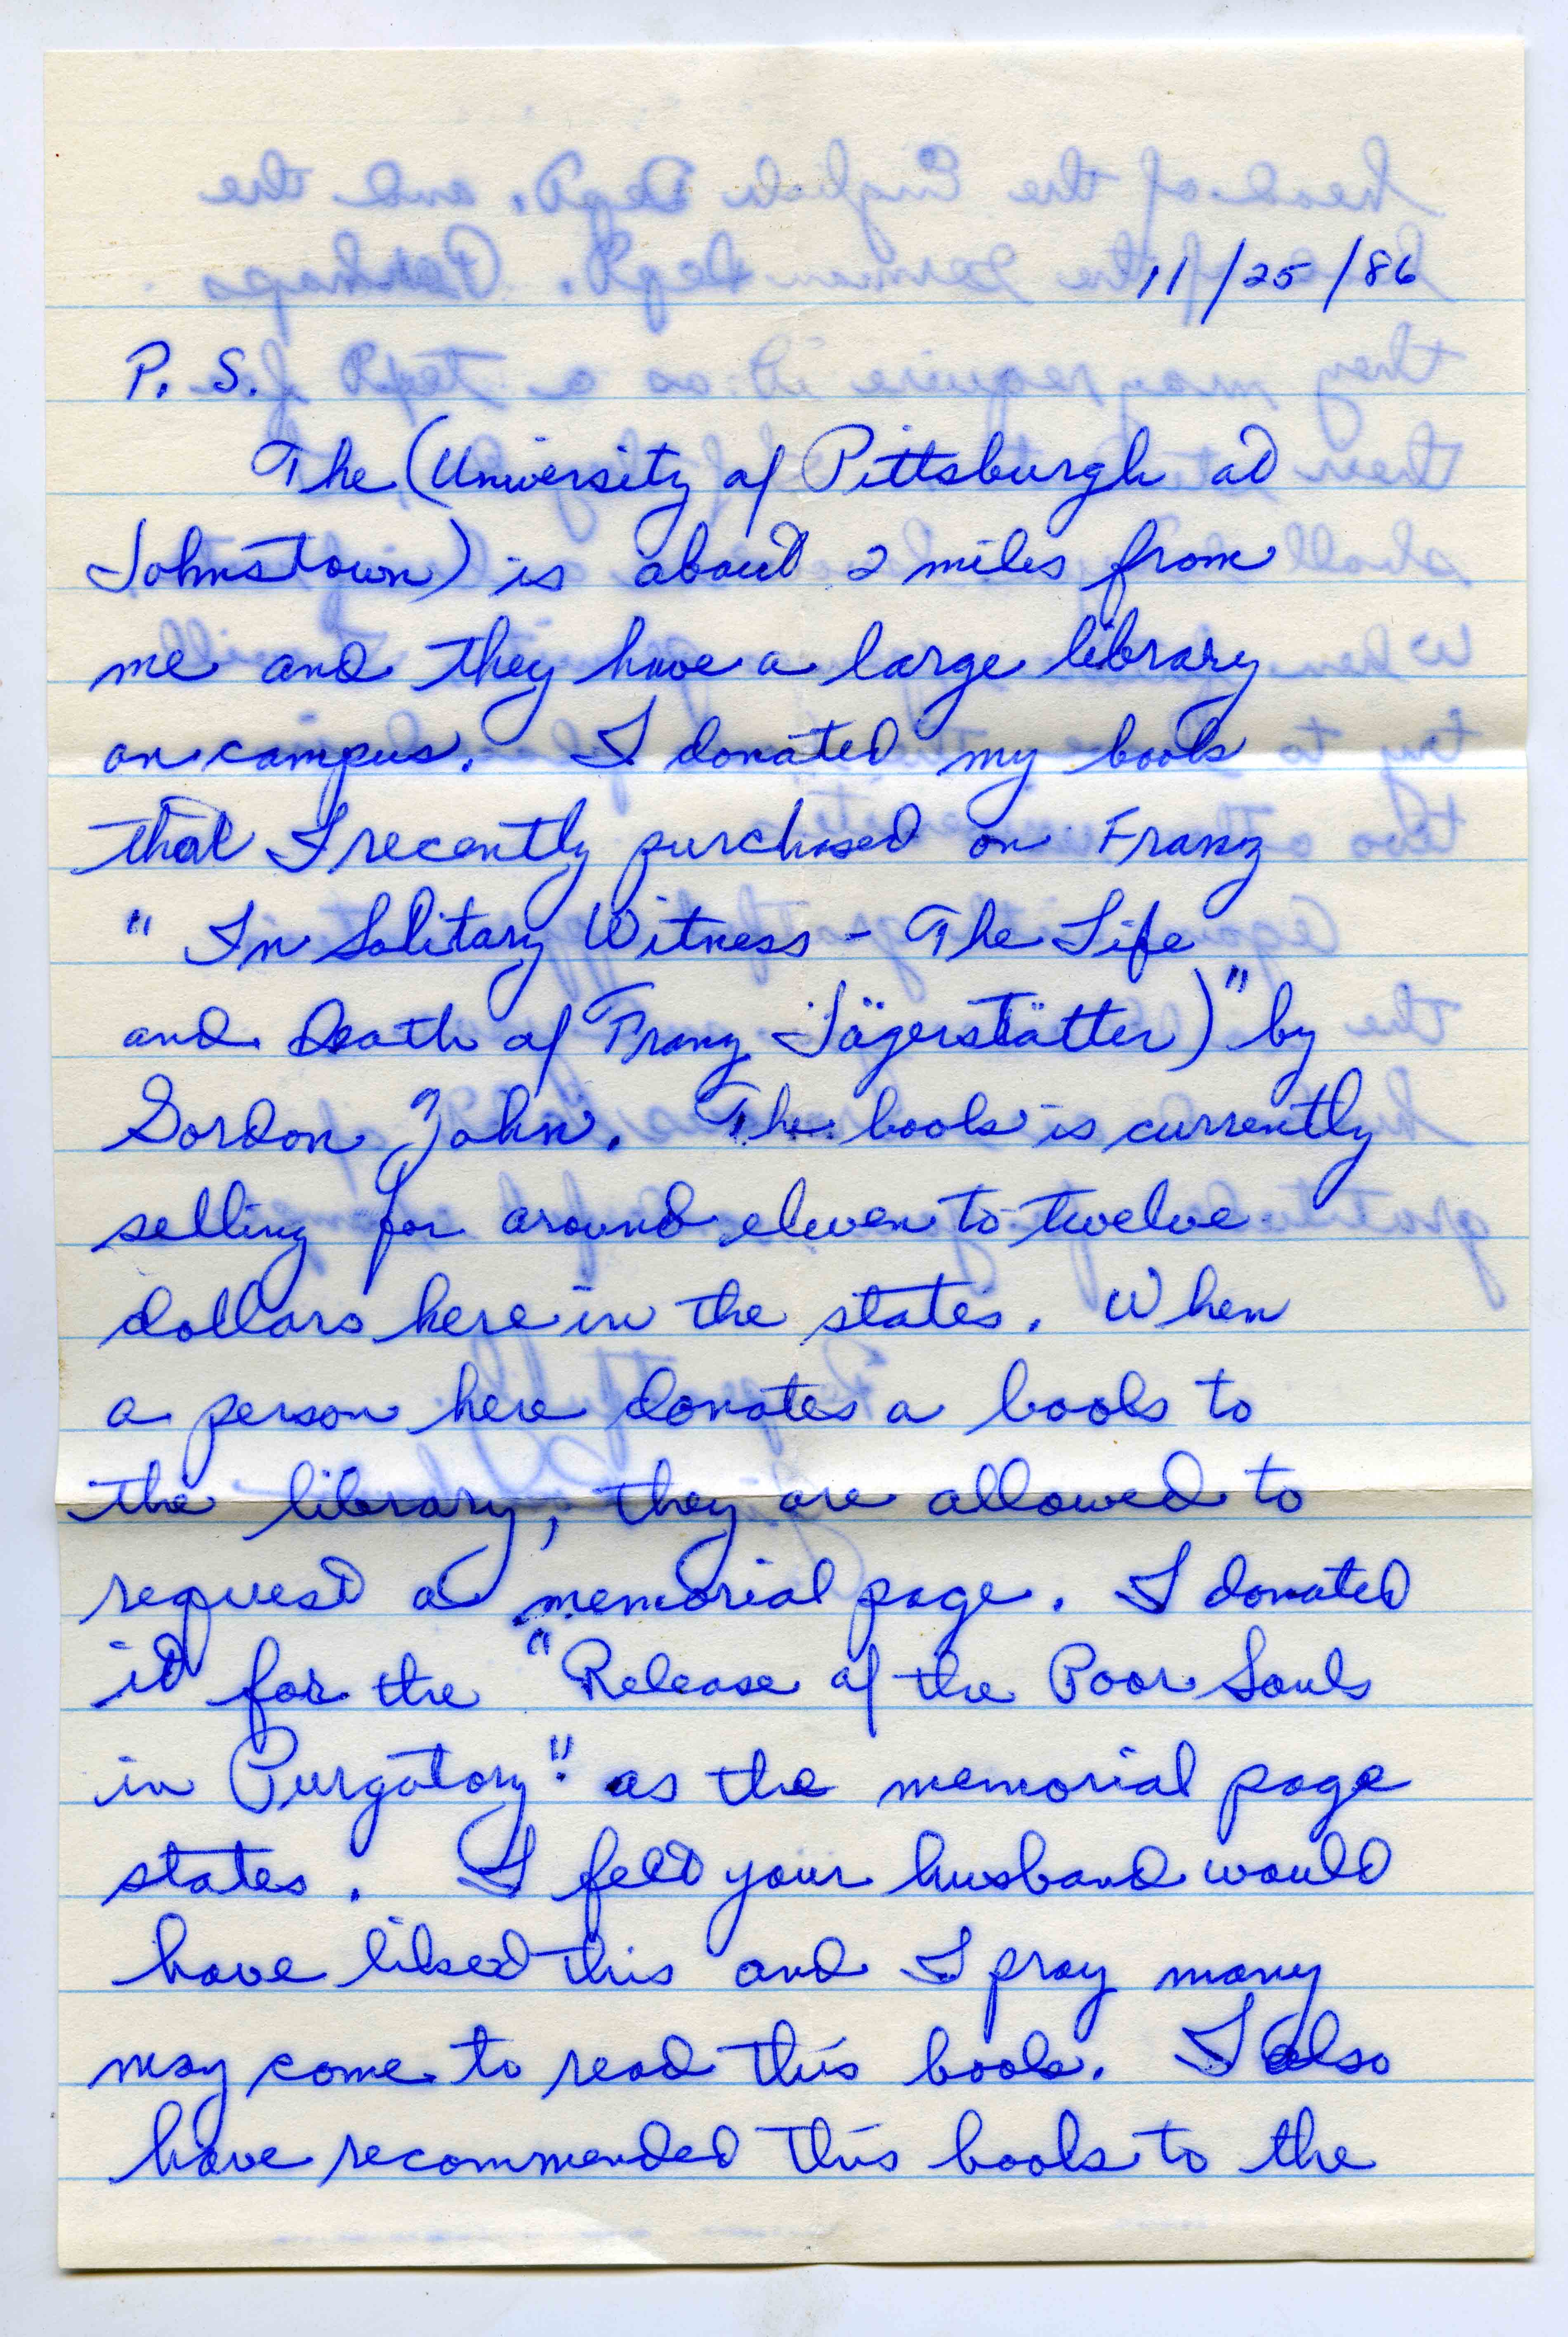 11/25/86
P. S.
The (University of Pittsburgh at
Johnstown) is about 2 miles from
me and they have a large library
on campus. I donated my book
that I recently purchased on Franz
" In Solitary Witness - The Life
and Death of Franz Jägerstätter)" by
Gordon Zahn. The book is currently
selling for around eleven to twelve
dollars here in the states. When
a person here donates a book to
the library, they are allowed to
request a memorial page. I donated
it for the "Release of the Poor Souls
in Purgatory". as the memorial page
states. I felt your husband would
have liked this and I pray many
may come to read this book. I also
have recommended this book to the